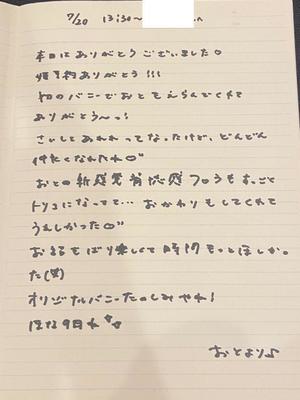 7/20 13:30〜
本日はありがとうございました♡
姫予約ありがとう!!!
初のバニーでおとをえらんでくれて
ありがとう〜っ!
さいしょあわわってなったけど、どんどん
仲良くなれたね♡"
おとの新感覚 フロうもすっごと
トリコになってて… おかわりもしてくれて
うれしかった♡"
おるもばり楽しくて時間もっとほしか。
た(笑)
オリジナルバニーたのしみやね!
ほな9日ね
おとより♪